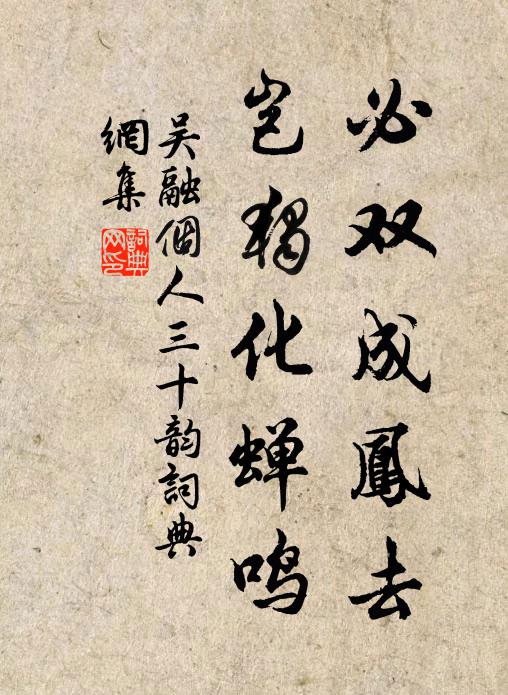 必双成鳳去
岂獨化蝉鸣
吴融個人三十韵詞典
網集
詞典
网印